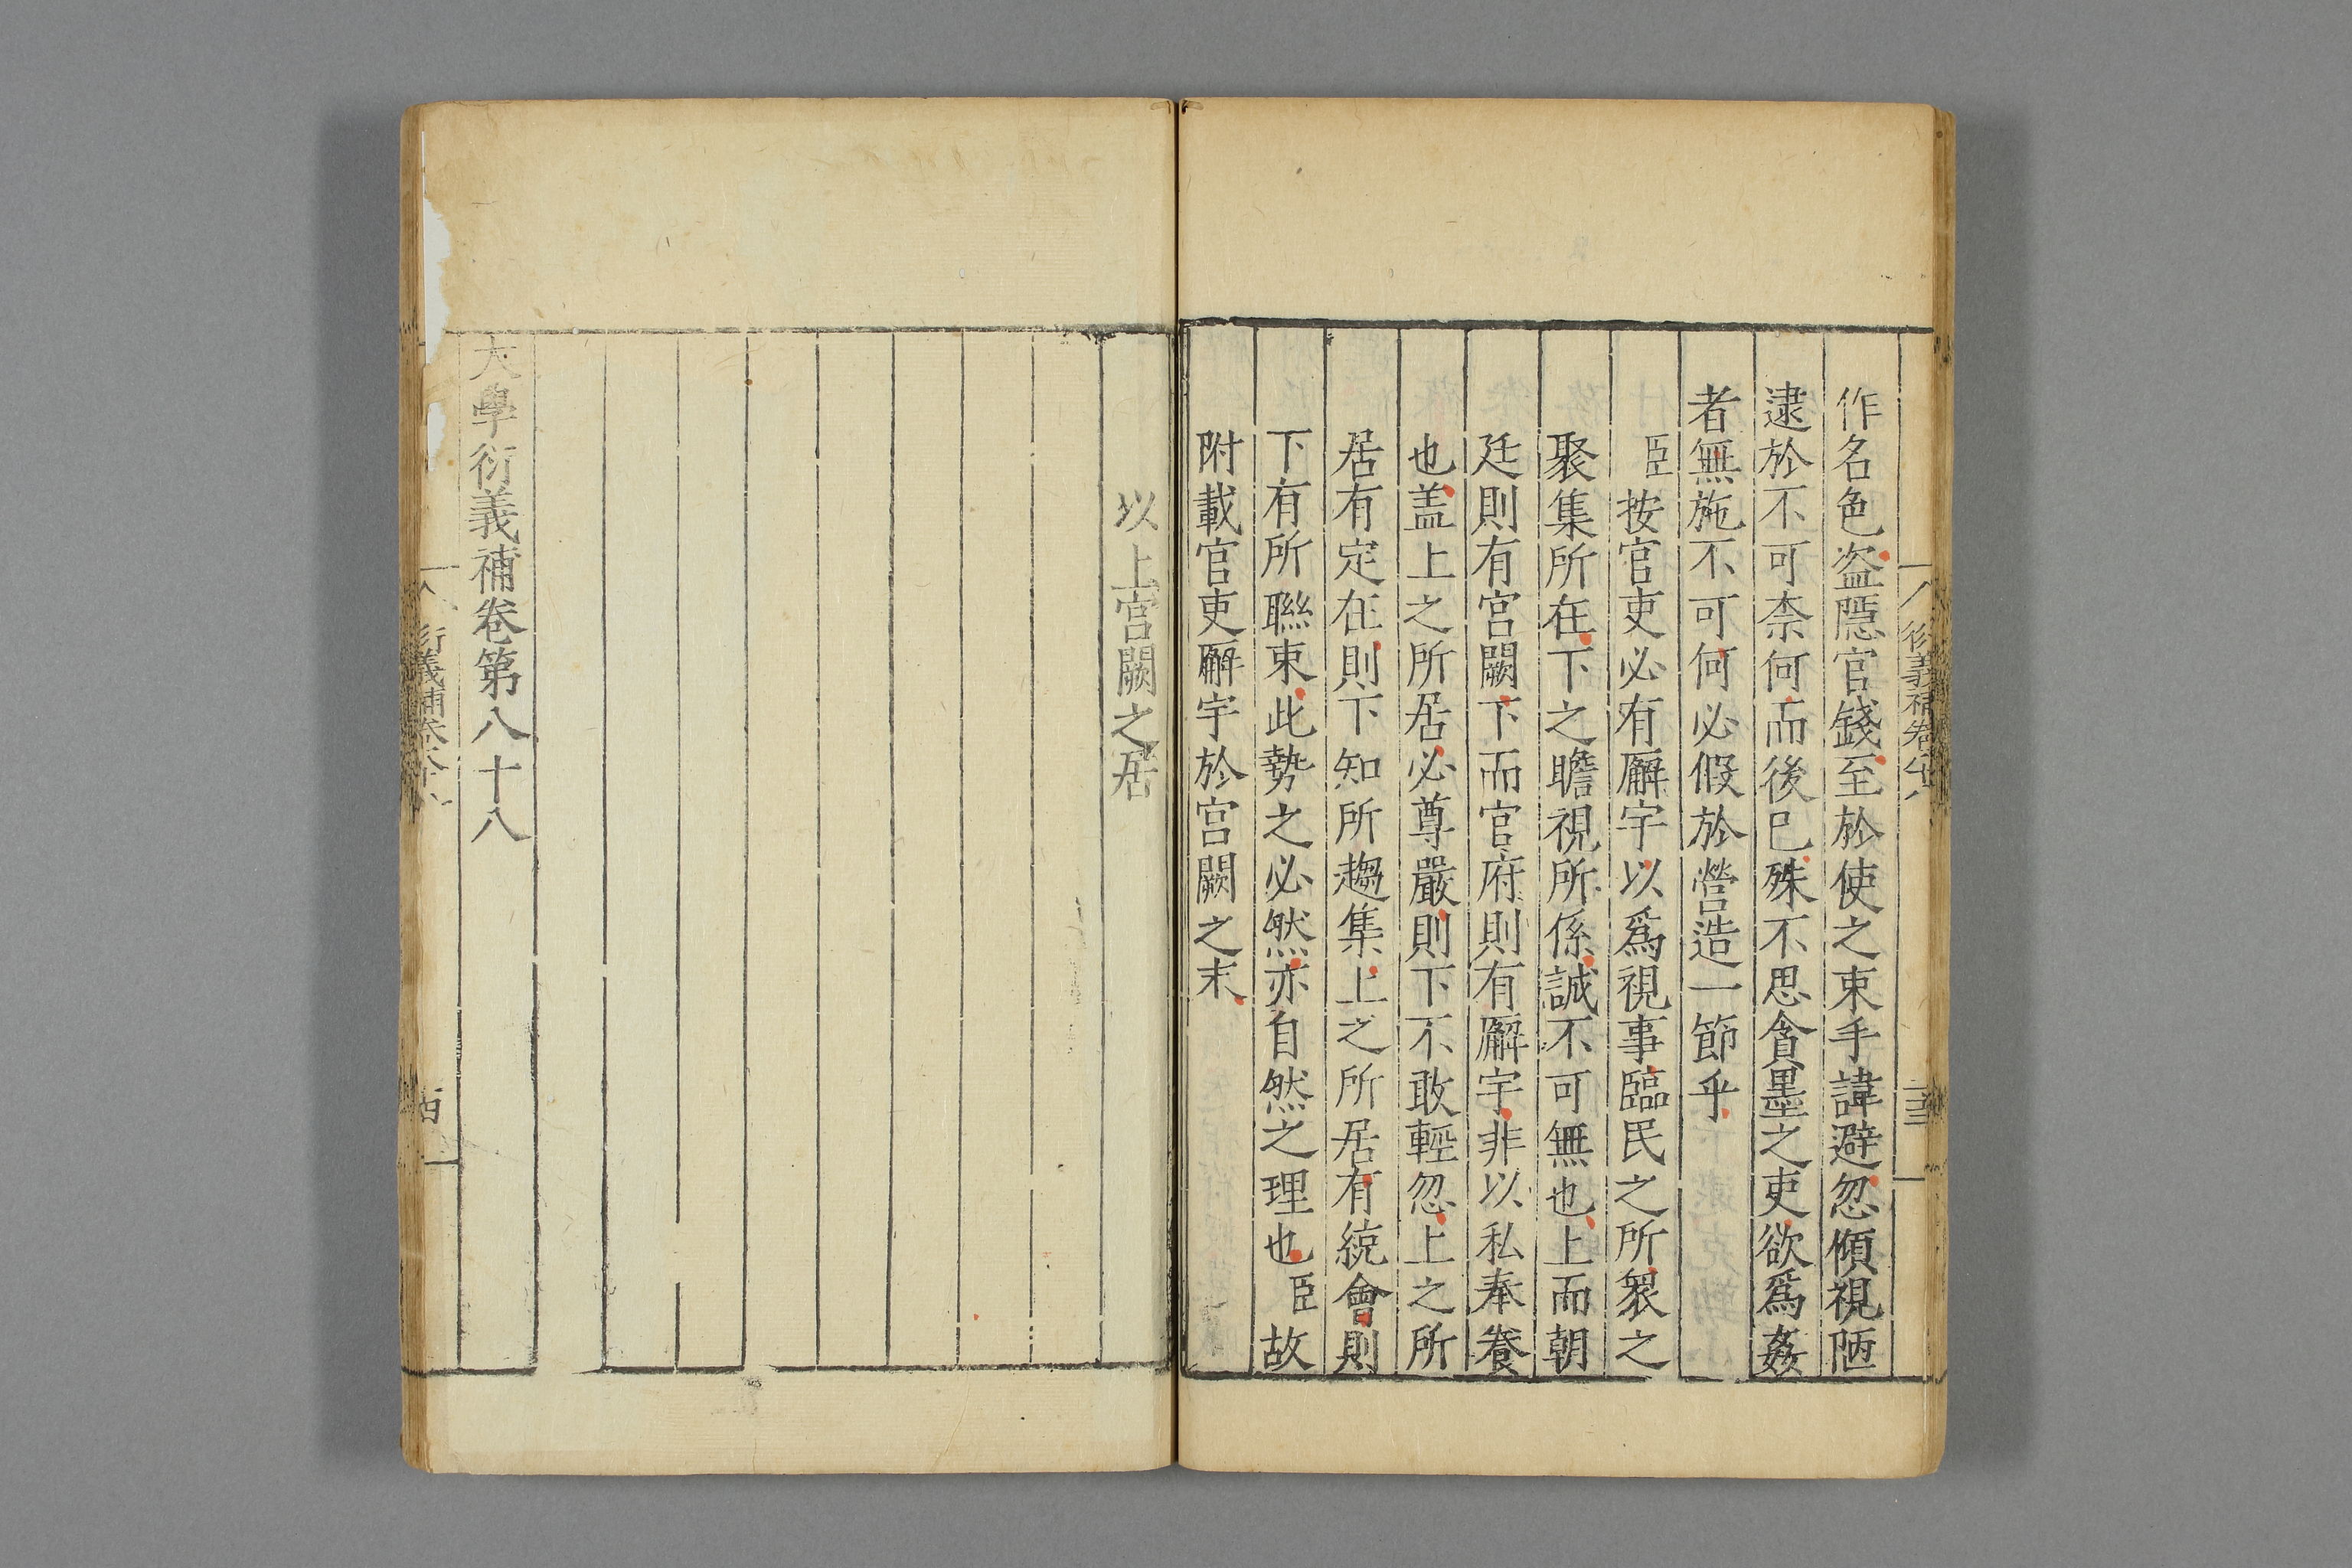 作名色盗隱官錢至於使之束手諱避忽傾視陋
逮於不可柰何而後已殊不思貪墨之吏欲爲姦
者無施不可何必假於營造一節乎
臣按官吏必有廨宇以爲視事臨民之所衆之
聚集所在下之瞻視所係誠不可無也上而朝
廷則有宮闕下而官府則有廨宇非以私奉養
也盖上之所居必尊嚴則下不敢輕忽上之所
居有定在則下知所趨集上之所居有統會則
下有所聯束此勢之必然亦自然之理也臣故
附載官吏廨宇於宮闕之末
以上宮闕之居
大學衍義補卷第八十八
衍義補卷